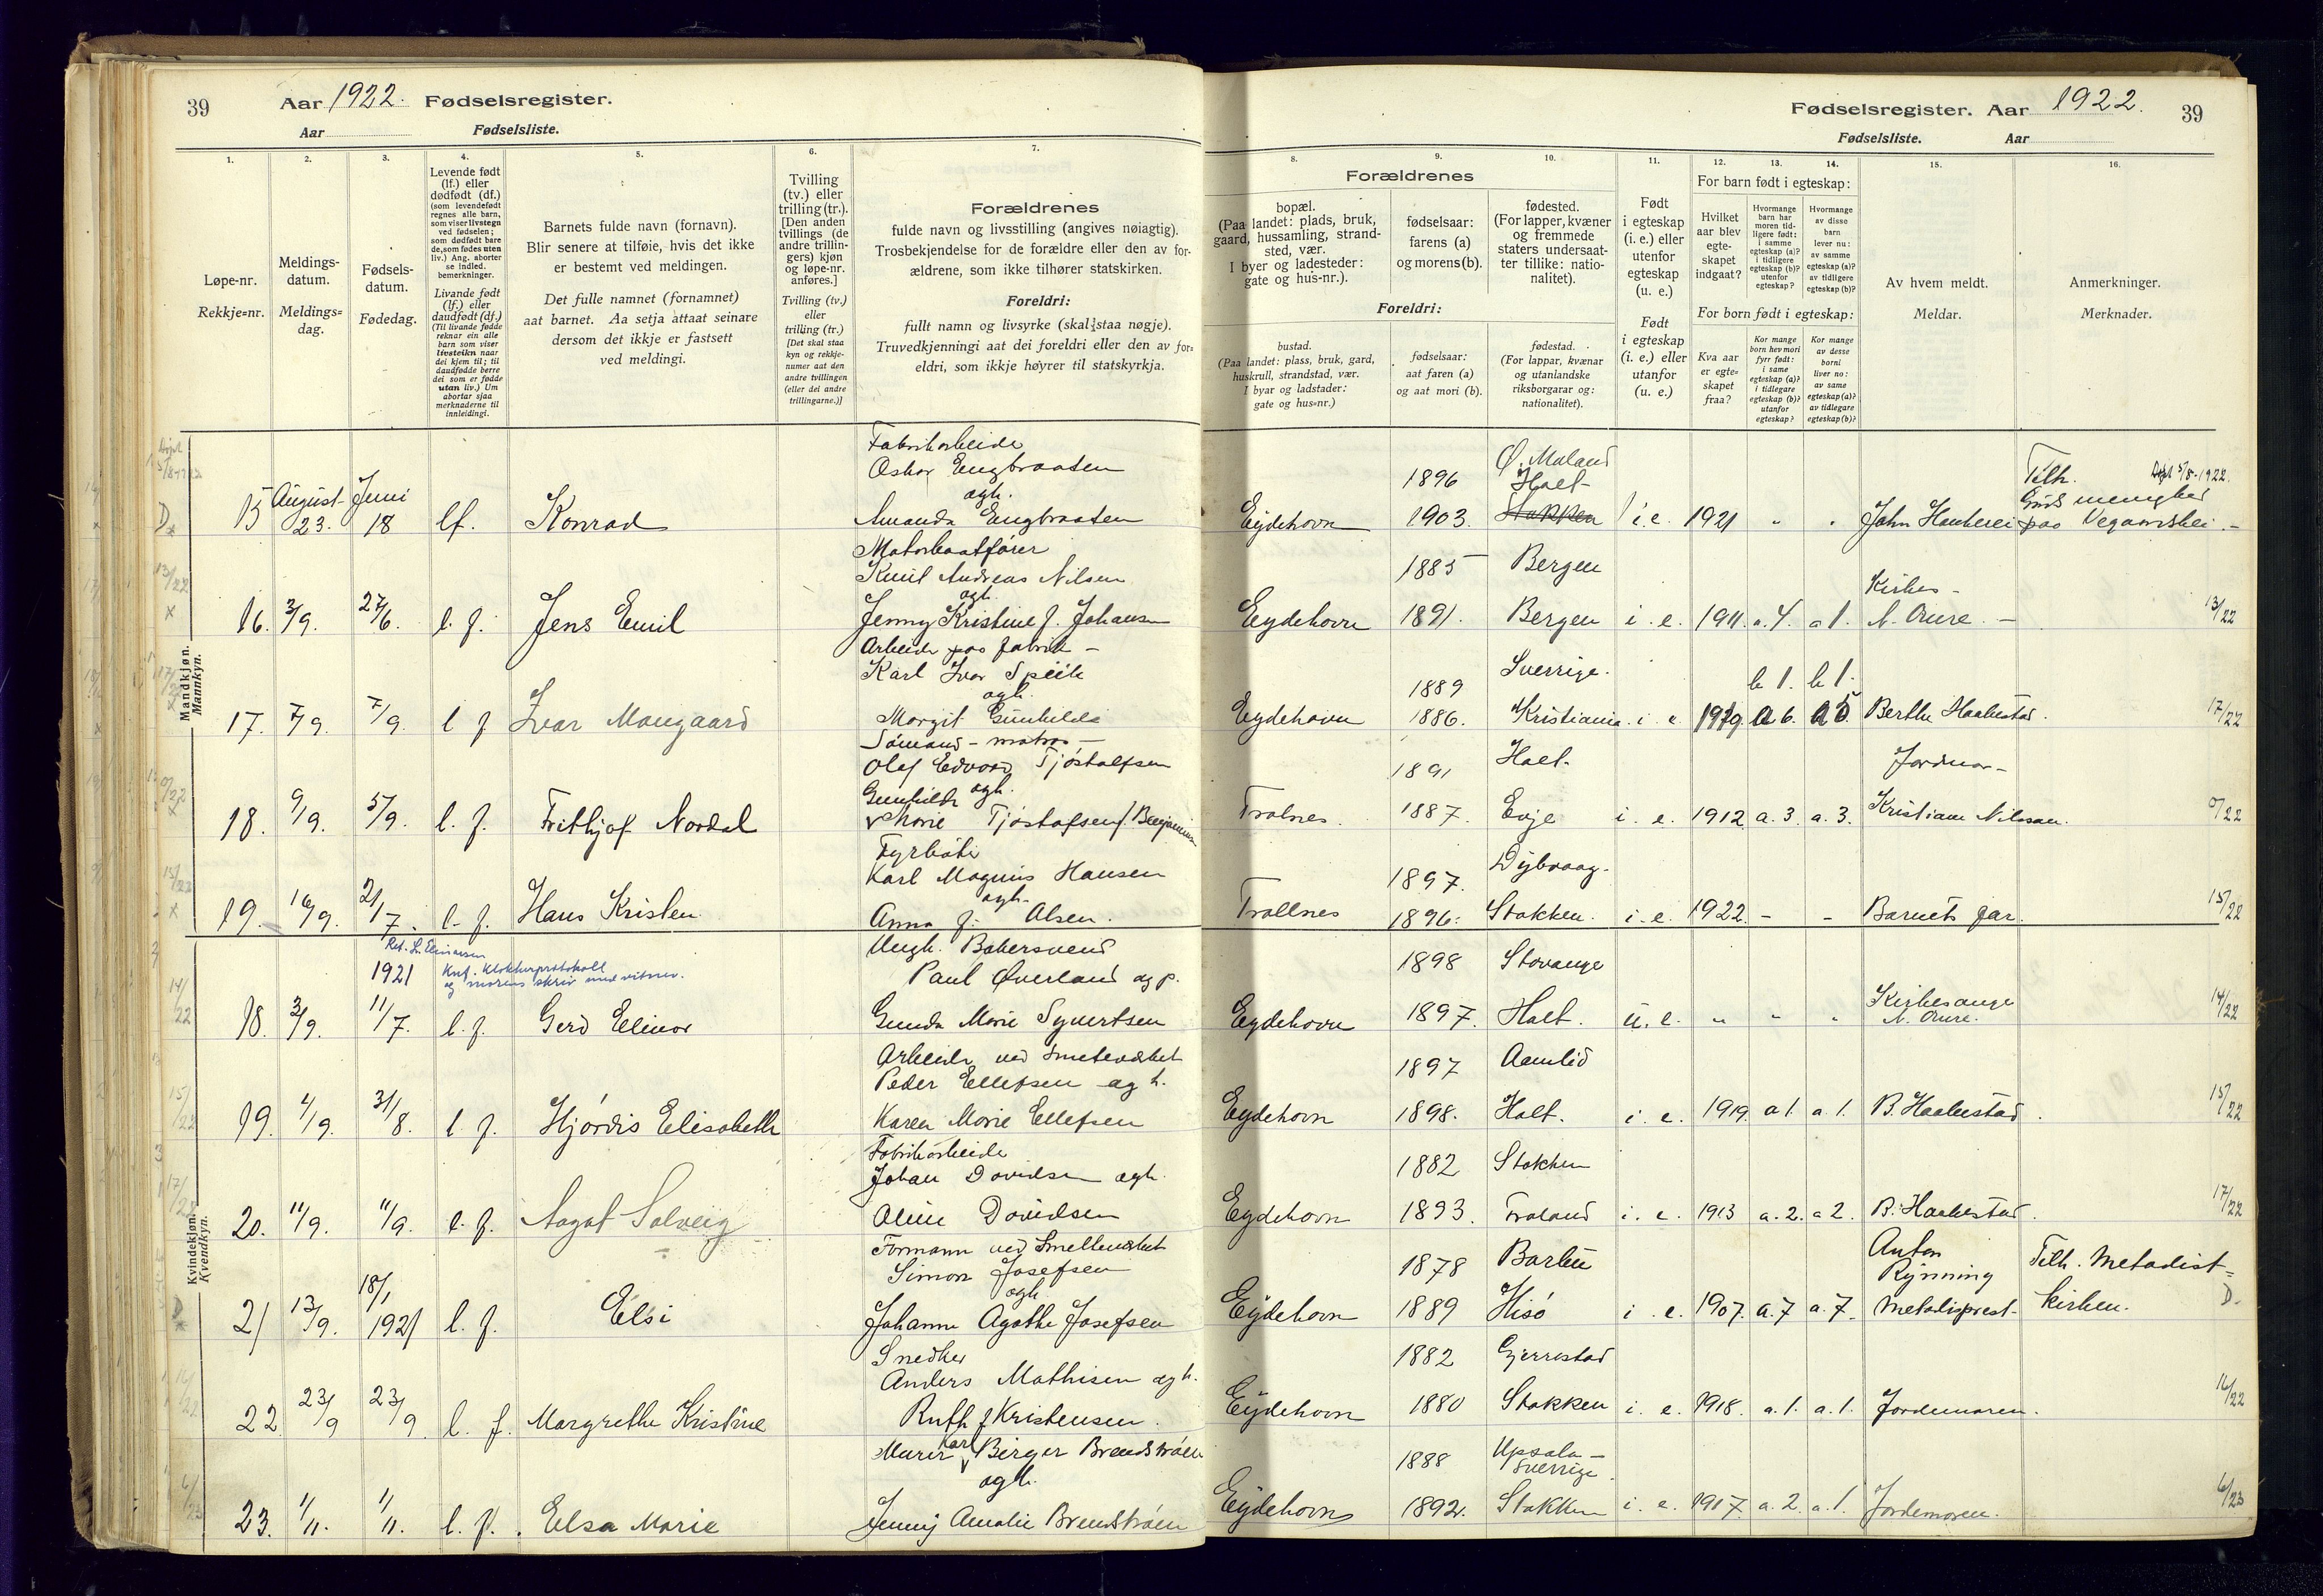 39 Aar 1922. Fødselsregister.
Aar Fødselsliste.
Fødselsregister. Aar 1922. 39
Fødselsliste. Aar
1.
Løpe-nr.
Rekkje-nr.
2.
Meldings-
datum.
Meldings-
dag.
3.
Fødsels-
datum.
Fødedag.
4.
Levende født
(lf.) eller
dødfødt (df.)
(som levendefødt
regnes alle barn,
som viser livstegn
ved fødselen;
som dødfødt bare
de, som fødes uten
liv.) Ang. aborter
se indled.
bemerkninger.
Livande født
(lf.) eller
daudfødt (df.)
(Til livande fødde
reknar ein alle
barn som viser
livsteikn naar
dei kjem til; til
daudfødde berre
dei som er fødde
utan liv.) Um
abortar sjaa
merknaderne til
innleidingi.
5.
Barnets fulde navn (fornavn).
Blir senere at tilføie, hvis det ikke
er bestemt ved meldingen.
Det fulle namnet (fornamnet)
aat barnet. Aa setja attaat seinare
dersom det ikkje er fastsett
ved meldingi.
6.
Tvilling
(tv.) eller
trilling (tr.).
[Den anden
tvillings (de
andre trillin-
gers) kjøn
og løpe-nr.
anføres.]
Tvilling (tv.)
eller
trilling (tr.)
[Det skal staa
kyn og rekkje-
numer aat den
andre tvillingen
(eller dei andre
trillingarne.)]
7.
Forældrenes
fulde navn og livsstilling (angives nøiagtig).
Trosbekjendelse for de forældre eller den av for-
ældrene, som ikke tilhører statskirken.
Foreldri:
fullt namn og livsyrke (skal staa nøgje).
Truvedkjenningi aat dei foreldri eller den av for-
eldri, som ikkje høyrer til statskyrkja.
Forældrenes
8.
bopæl.
(Paa landet: plads, bruk,
gaard, hussamling, strand-
sted, vær.
I byer og ladesteder:
gate og hus-nr.).
9.
fødselsaar:
farens (a)
og morens (b).
10.
fødested.
(For lapper, kvæner
og fremmede
staters undersaat-
ter tillike: natio-
nalitet).
Foreldri:
bustad.
(Paa landet: plass, bruk, gard,
huskrull, strandstad, vær.
I byar og ladstader:
gate og hus-nr.)
fødselsaar:
aat faren (a)
og aat mori (b).
fødestad.
(For lappar, kvænar
og utanlandske
riksborgarar og:
nationalitet).
11.
Født
i egteskap
(i. e.) eller
utenfor
egteskap
(u. e.)
Født
i egteskap
(i. e.) eller
utanfor
(u. e.)
12. 13. 14.
For barn født i egteskap:
Hvilket
aar blev
egte-
skapet
indgaat?
Hvormange
barn har
moren tid-
ligere født:
i samme
egteskap (a)?
i tidligere
egteskap (b)?
utenfor
egteskap?
Hvormange
av disse
barn
lever nu:
av samme
egteskap (a)?
av tidligere
egteskap (b)?
For born født i egteskap:
Kva aar
er egte-
skapet
fraa?
Kor mange
born hev mori
fyrr født:
i same
egteskap (a)?
i tidlegare
egteskap (b)?
utanfor
egteskap?
Kor mange
av desse
borni
liver no:
av same
egteskap (a)?
av tidlegare
egteskap (b)?
15.
Av hvem meldt.
Meldar.
16.
Anmerkninger.
Merknader.
Mandkjøn.
Mannkyn.
Fabrikarbeide
Oskar Engbraaten
ogh.
15 August 23. Juni 18 lf. Konrad Amanda Engbraaten Eydehavn 1896 1903. Ø. Moland Holt Stokken i. e. 1921 " " John Haukesei
Tilh. Guds menighed paa Vegaarshei. Døpt 5/8-1922.
Motorbaatfører
Knut Andreas Nilsen
ogh.
16. 2/9. 27/6. l. f. Jens Emil Jenny Kristine f. Johansen Eydehavn 1885 1891. Bergen Bergen i. e. 1911. a. 4. a 1. Kirkes- N. Aure. 13/22
Arbeide paa fabrik
Karl Ivar Speik
ogh.
17. 7/9. 7/9. l. f Ivar Mangaard Margit Gunhilda Eydehavn 1889 1886. Sverrige. Kristiania. i. e 1919. b 1. a 6. b 1. a 5 Berthe Haakestad. 17/22
Sømand - matros -
Olaf Edvard Tjøstolfsen
ogh.
18. 9/9. 5/9. l. f. Frithjof Nordal Gunhilda Marie Tjøstolfsen f. Benjaminsen Tralnes. 1891 1887. Holt. Evje i. e. 1912. a. 3. a. 3. Jordmor- Kristiane Nilssen.
Fyrbøte
Karl Magnus Hansen
ogh.
19. 16/9. 21/7. l. f. Hans Kristen. Anna f. Olsen. Trollnes 1897. 1896. Dybvaag. Stokken. i. e. 1922. - - Barnets far. 15/22
Kvindekjøn.
Kvendkyn.
Knf. Klokkerprotokoll
og morens skriv med vitner.
Ungk. Bakersvend
Paul Øverland og p.
18. 2/9. 1921 11/7. l. f. Gerd Elinor Gunda Marie Syvertsen Eydehavn 1898 1897. Stavanger Holt. u. e. " " " Kirkesanger N. Aure. 14/22
Arbeide ved Smelteverket
Peder Ellefsen og h.
19. 4/9. 31/8. l. f. Hjørdis Elisabeth Karen Marie Ellefsen Eydehavn 1897 1898. Aamlid Holt. i. e. 1919. a 1. a 1. B. Haakestad. 15/22
Fabrikarbeide
Johan Davidsen ogh.
20. 11/9. 11/9. l. f. Aagot Solveig Aline Davidsen Eydehavn 1882 1893. Stokken Froland i. e. 1913 a. 2. a 2. B. Haakestad. 17/22
Formann ved Smelteverket
Simon Josefsen
ogh.
21 13/9. 18/1 1921 l. f. Elsi Johanne Agathe Josefsen Eydehavn 1878 1889 Barbu Hisø i. e. 1907. a. 7 a. 7. Anton Rynning Metodisprest- Tilh. Metodist-kirken. D.
Snedker
Anders Mathisen og h.
22 23/9 23/9. l. f. Margrethe Kristine Ruth f Kristensen. Eydehavn 1882 1880 Gjerrestad Stokken i. e. 1918. a. 1. a. 1. Jordemoren. 16/22
Murer Karl Birger Brendstrøen
ogh.
23. 1/11. 1/11. l. f. Elsa Marie Jenny Amalie Brendstrøen Eydehavn 1888 1892. Upsala - Sverrige. Stokken i. e. 1917. a. 2. a. 1. Jordemoren. 6/23